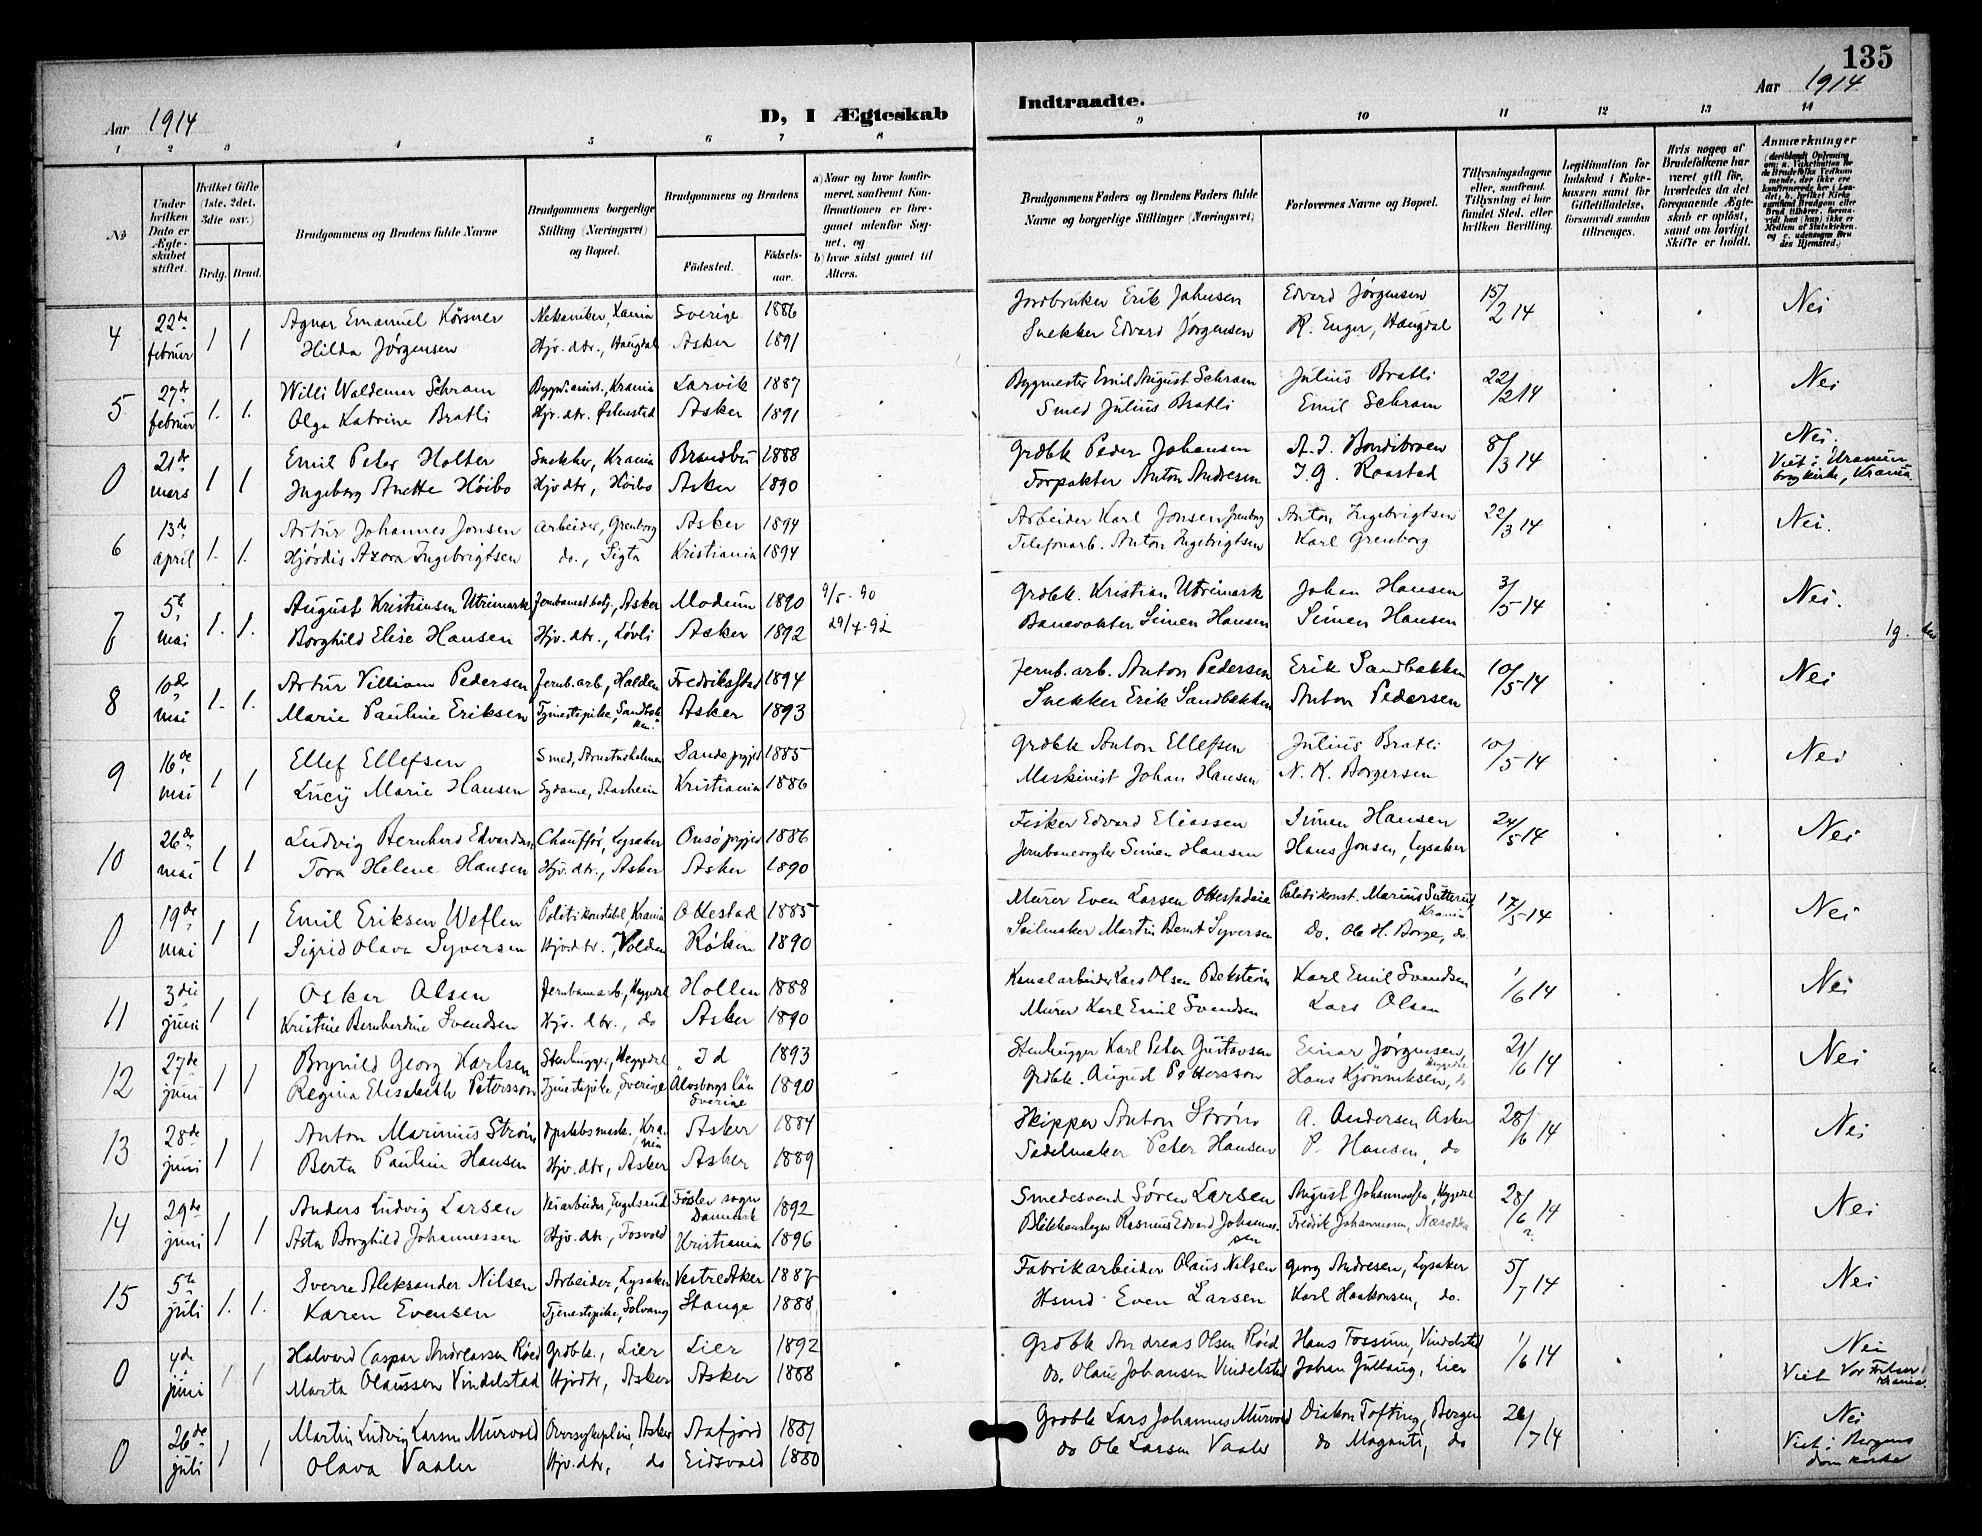 135
Aar 1914 D, I Ægteskab Indtraadte. Aar 1914
1 2 3 4 5 6 7 8 9 10 11 12 13 14
No
Under hvilken Dato er Ægteskabet stiftet.
Hvilket Gifte (1ste, 2det, 3die osv.)
Brdg. Brud.
Brudgommens og Brudens fulde Navne
Brudgommens borgerlige Stilling (Næringsvei) og Bopæl.
Brudgommens og Brudens
Fødested. Fødselsaar.
a) Naar og hvor konfirmeret, saafremt Konfirmationen er foregaaet udenfor Sognet, og
b) hvor sidst gaaet til Alters.
Brudgommens Faders og Brudens Faders fulde Navne og borgerlige Stillinger (Næringsvei)
Forlovernes Navne og Bopæl.
Tillysningsdagene eller, saafremt Tillysning ei har fundet Sted, efter hvilken Bevilling.
Legitimation for Indskud i Enkekassen samt for Giftetilladelse, forsaavidt saadan tiltrænges.
Hvis nogen af Brudefolkene har været gift før, hvorledes da det foregaaende Ægteskab er opløst, samt om lovligt Skifte er holdt.
Anmærkninger
4 22de februar 1 1 Agnar Emanuel Körsner Mekaniker, Krania Sverige 1886 Jordbruker Erik Johnsen Edvard Jørgensen 15/2 14 Nei
Hilda Jørgensen Hjv. dtr., Haugdal Asker 1891 Snekker Edvard Jørgensen R. Enger, Haugdal
5 27de februar 1. 1. Willi Waldemar Schram Krania Larvik 1887 Bygmester Emil August Schram Julius Bratli 22/2 14 Nei
Olga Katrine Bratli Hjv. dtr. Asker 1891 Smed Julius Bratli Emil Schram
0 21de mars 1 1 Emil Peter Holter Snekker, Krania Brandbu 1888 Grdbk Peder Johansen A. J. Bondibraaten 8/3 14 Nei.
Ingeborg Anette Høibo Hjv dtr, Høibo Asker 1890 Forpakter Anton Andresen J. G. Raastad Viet i Uranienborg kirke, Krania.
6 13de april 1. 1. Artur Johannes Jonsen Arbeider, Grenborg Asker 1894 Arbeider Karl Jonsen Grenborg Anton Ingebrigtsen 22/3 14 Nei.
Hjørdis Azora Ingebrigtsen do., Sigta Kristiania 1894 Telefonarb. Anton Ingebrigtsen Karl Grenborg
7 5te mai 1. 1. August Kristiansen Utrimark Asker Modum 1890 9/5-90 Grdbk. Kristian Utrimark Johan Hansen 3/5-14 Nei.
Borghild Elise Hansen Hjv. dtr., Løvli Asker 1892 29/4-92 Banevokter Simen Hansen Simen Hansen
8 10de mai 1. 1. Artur Villiam Pedersen Jernb. arb, Halden Fredriksstad 1894 Jernb. arb. Anton Pedersen Erik Sandbakken 10/5-14 Nei
Marie Pauline Eriksen Tjenestepike, Sandbakken Asker 1893 Snekker Erik Sandbakken Anton Pedersen
9 16de mai 1 1 Ellef Ellefsen Smed, Sande prgjld 1885 Grdbk Anton Ellefsen Julius Bratli 10/5-14 Nei
Lucy Marie Hansen Sydame, Aasheim Kristiania 1886 Maskinist Johan Hansen N. K. Borgersen
10 26de mai 1 1 Ludvig Bernhard Edvardsen Chauffør, Lysaker Onsø prgjld 1886 Fisker Edvard Eliassen Simen Hansen 24/5-14 Nei
Tora Helene Hansen Hjv. dtr., Asker Asker 1890 Simen Hansen Hans Jonsen, Lysaker
0 19de mai 1 1 Emil Eriksen Weflen Politikonstabel Krania Ottestad 1885 Murer Even Larsen Ottestadeie Politikonst. Marius Sutterud, Krania 17/5-14 Nei
Sigrid Olava Syversen Hjvdtr., Volden Røken 1890 Seilmaker Martin Bernt Syversen Do. Ole H. Borge, do.
11 3die juni 1 1 Oskar Olsen Jernbanearb., Heggedal Hollen 1888 Kanalarbeider Lars Olsen Karl Emil Svendsen 1/6 14 Nei
Kristine Bernhardine Svendsen Hjv. dtr., do Asker 1890 Murer Karl Emil Svendsen Lars Olsen
12 27de juni 1 1 Brynild Georg Karlsen Stenhugger, Heggedal Id 1893 Stenhugger Karl Peter Gustavsen Einar Jørgensen, Heggedal 21/6 14 Nei
Regina Elisabeth Petersson Tjenestepike, Sverige Alvsborgs län Sverige 1890 Grdbk. August Pettersson Hans Kjönniksen, do
13 28de juni 1 1 Anton Marinius Strøm Opsatsmask., Krania Asker 1884 Skipper Anton Strøm A. Andersen Asker 28/6 14 Nei
Berta Pauline Hansen Hjv. dtr, Asker Asker 1889 Sadelmaker Peter Hansen P. Hansen, do
14 29de juni 1 1 Anders Ludvig Larsen Veiarbeider, Engelsrud sogn Danmark 1892 Smedesvend Sören Larsen August Johannessen, Heggedal 28/6 14 Nei
Asta Borghild Johannessen Hjv. dtr, Fosvold Kristiania 1896 Blikkenslager Rasmus Edvard Johannessen Fredrik Johannessen, Næsodden
15 5te juli 1. 1. Sverre Aleksander Nilsen Arbeider, Lysaker Vestre Aker 1887 Fabrikarbeider Olaus Nilsen Georg Andresen, Lysaker 5/7 14 Nei
Karen Evensen Tjenestepike, Solvang Stange 1888 Hsmd Even Larsen Karl Haakonsen, do.
0 4de juni 1 1 Halvard Caspar Andreassen Røed Grdbk., Lier Lier 1892 Grdbk Andreas Olsen Røed Hans Fossum, Vindelstad 1/6 14 Nei
Marta Olaussen Vindelstad Hjvdtr, Asker Asker 1888 do. Olaus Johansen Vindelstad Johan Gullaug, Lier Viet Vor Frelser Krania.
0 26de juli 1 1 Martin Ludvig Larsen Murvold Asker Aafjord 1881 Grdbk Lars Johannes Murvold Diakon Tofting, Bergen 26/7 14 Nei
Olava Vaaler Hjv. dtr, do Eidsvold 1880 do Ole Larsen Vaaler do Do Viet i Bergens domkirke